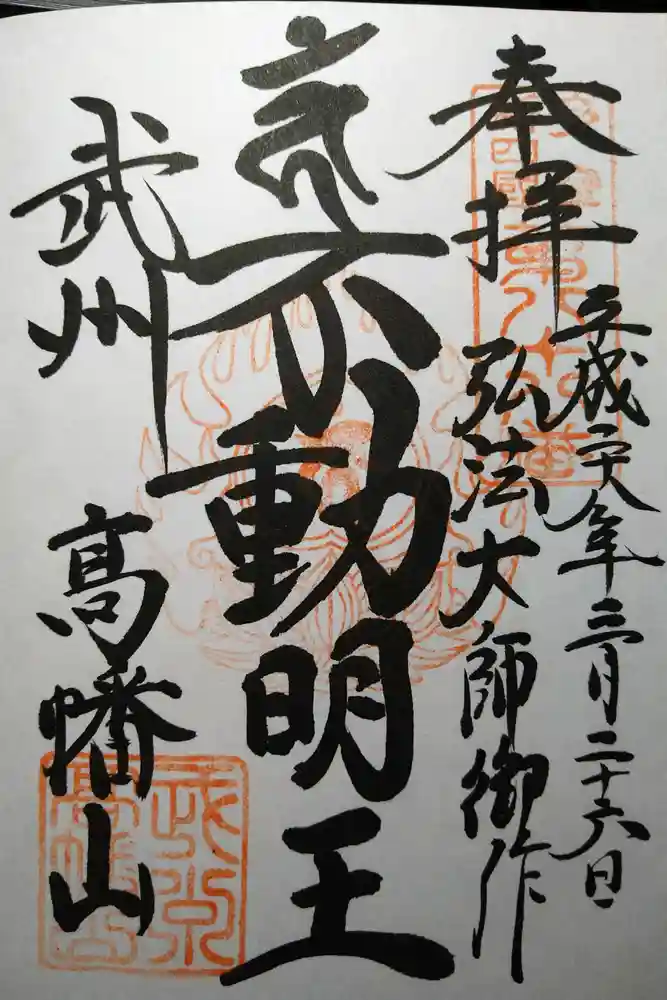 奉拝
平成二十八年三月二十六日
弘法大師御作
不動明王
武州
髙幡山